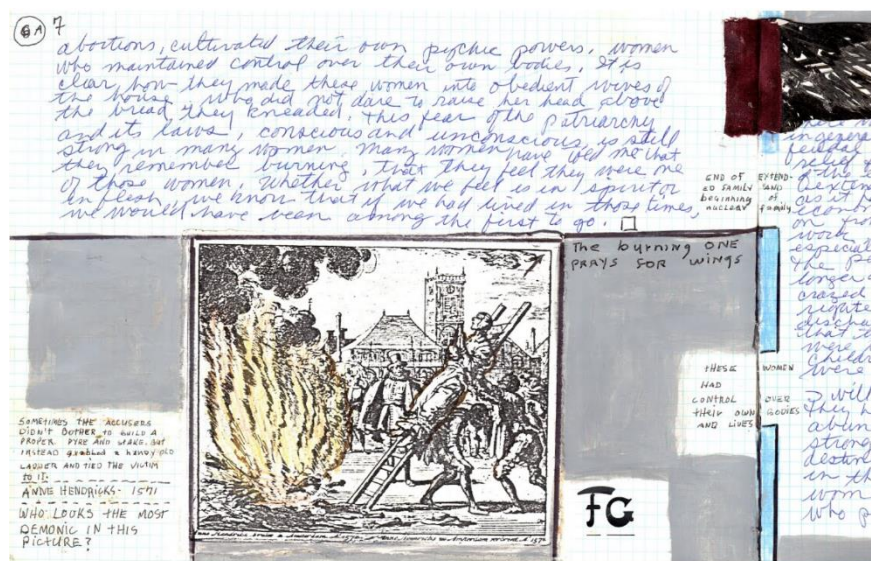 8A 7
abortions, cultivated their own psychic powers. women
who maintained control over their own bodies. It is
clear how they made these women into obedient wives of
the house, who did not dare to raise her head above
the bread they kneaded. This fear of the patriarchy
and its laws, conscious and unconscious, is still
strong in many women. many women have told me that
they remember burning, that they feel they were one
of those women. Whether what we feel is in spirit or
in flesh, we know that if we had lived in those times,
we would have been among the first to go.
END OF EXTEND-
ED FAMILY AND
beginning of
nuclear family
The burning ONE
PRAYS FOR WINGS
THESE WOMEN
HAD
CONTROL OVER
THEIR OWN BODIES
AND LIVES
SOMETIMES THE ACCUSERS
DIDN'T BOTHER TO BUILD A
PROPER PYRE AND STAKE. BUT
INSTEAD grabbed a handy old
LADDER AND TIED THE VICTIM
to it.
ANNE HENDRICKS - 1571
WHO LOOKS THE MOST
DEMONIC IN THIS
PICTURE?
FG
in genera
federal
relief
as it
work
especial
the pe
longer
crazed
righte
discha
that t
were
childr
were
I will
they h
abun
strong
destin
in th
wom
who p